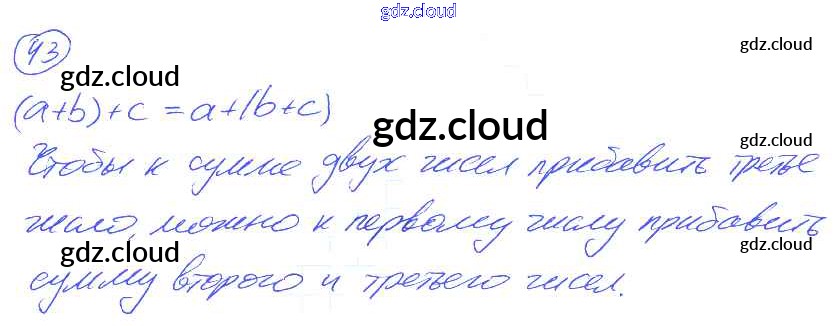 gdz.cloud
43
gdz.cloud
gdz.cloud
(a+b)+c = a+(b+c)
gdz.cloud
Чтобы к сумме двух чисел прибавить третье
gdz.cloud
число, можно к первому числу прибавить
gdz.cloud
gdz.cloud
сумму второго и третьего чисел.